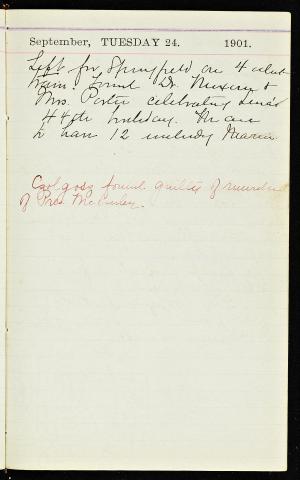 September, TUESDAY 24. 1901.
Left for Springfield on 4 o'clock
train. Found Dr. &
Mrs. Porter celebrating
44th birthday. We are
to have 12 including
Czolgosz found guilty of murder
of Pres McKinley.